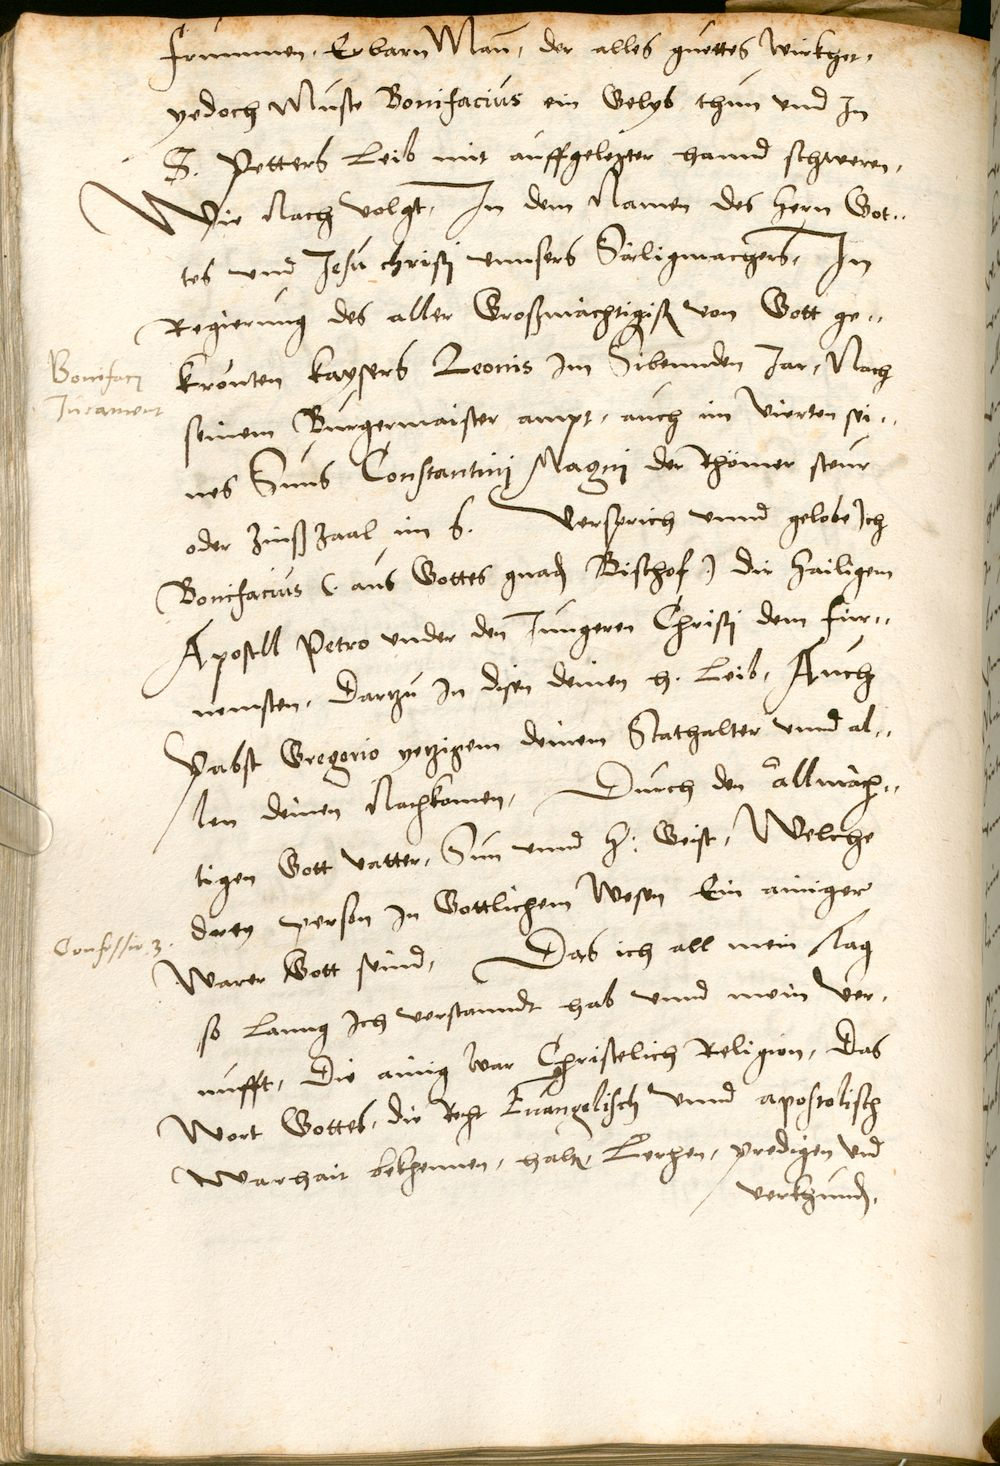 frummen, Erbarn Man, der alles guettes wurkhet,
yedoch Muste Bonifacius ein Gelyb thun vnd In
S. Petters Leib mit auffgelegter hannd schweren,
Wie Nach volgt, In dem Namen des Hern Got,,
tes vnd Jesu christi vnnsers Säligmachers, In
Regierung des aller Großmächtigist von Gott ge,,
krönten kaysers Leonis im Sibennden Jar, Nach
Bonifacij
Jurament
seinem Burgermaister ampt, auch im Vierten sei,,
nes Suns Constantini Magni der Rhömer steur
oder Zinß Zaal im 6. Versprich vnnd gelobe Ich
Bonifacius (aus Gottes gnad Bischof) dir hailigem
Apostll Petro vnder den Jungeren Christi dem für,,
nemsten, Dartzu In disen deinen h. Leib, Auch
Pabst Gregorio yetzigem deinem Stathalter vnnd al,,
len deinen Nachkomen, Durch den allmäch,,
tigen Gott vatter, Sun vnnd H: Geist, Welche
drey person In Gottlichem Wesen Ein ainiger
Confessio 3.
Warer Gott seind, Das ich all mein Tag
so lanng Ich verstanndt hab vnnd mein Ver,
nufft, Die ainig war Christelich Religion, Das
Wort Gottes, die Recht Euangelisch vnnd apostolisch
Warhait bekhennen, halten, Lerhen, predigen vnd
verkhunden,